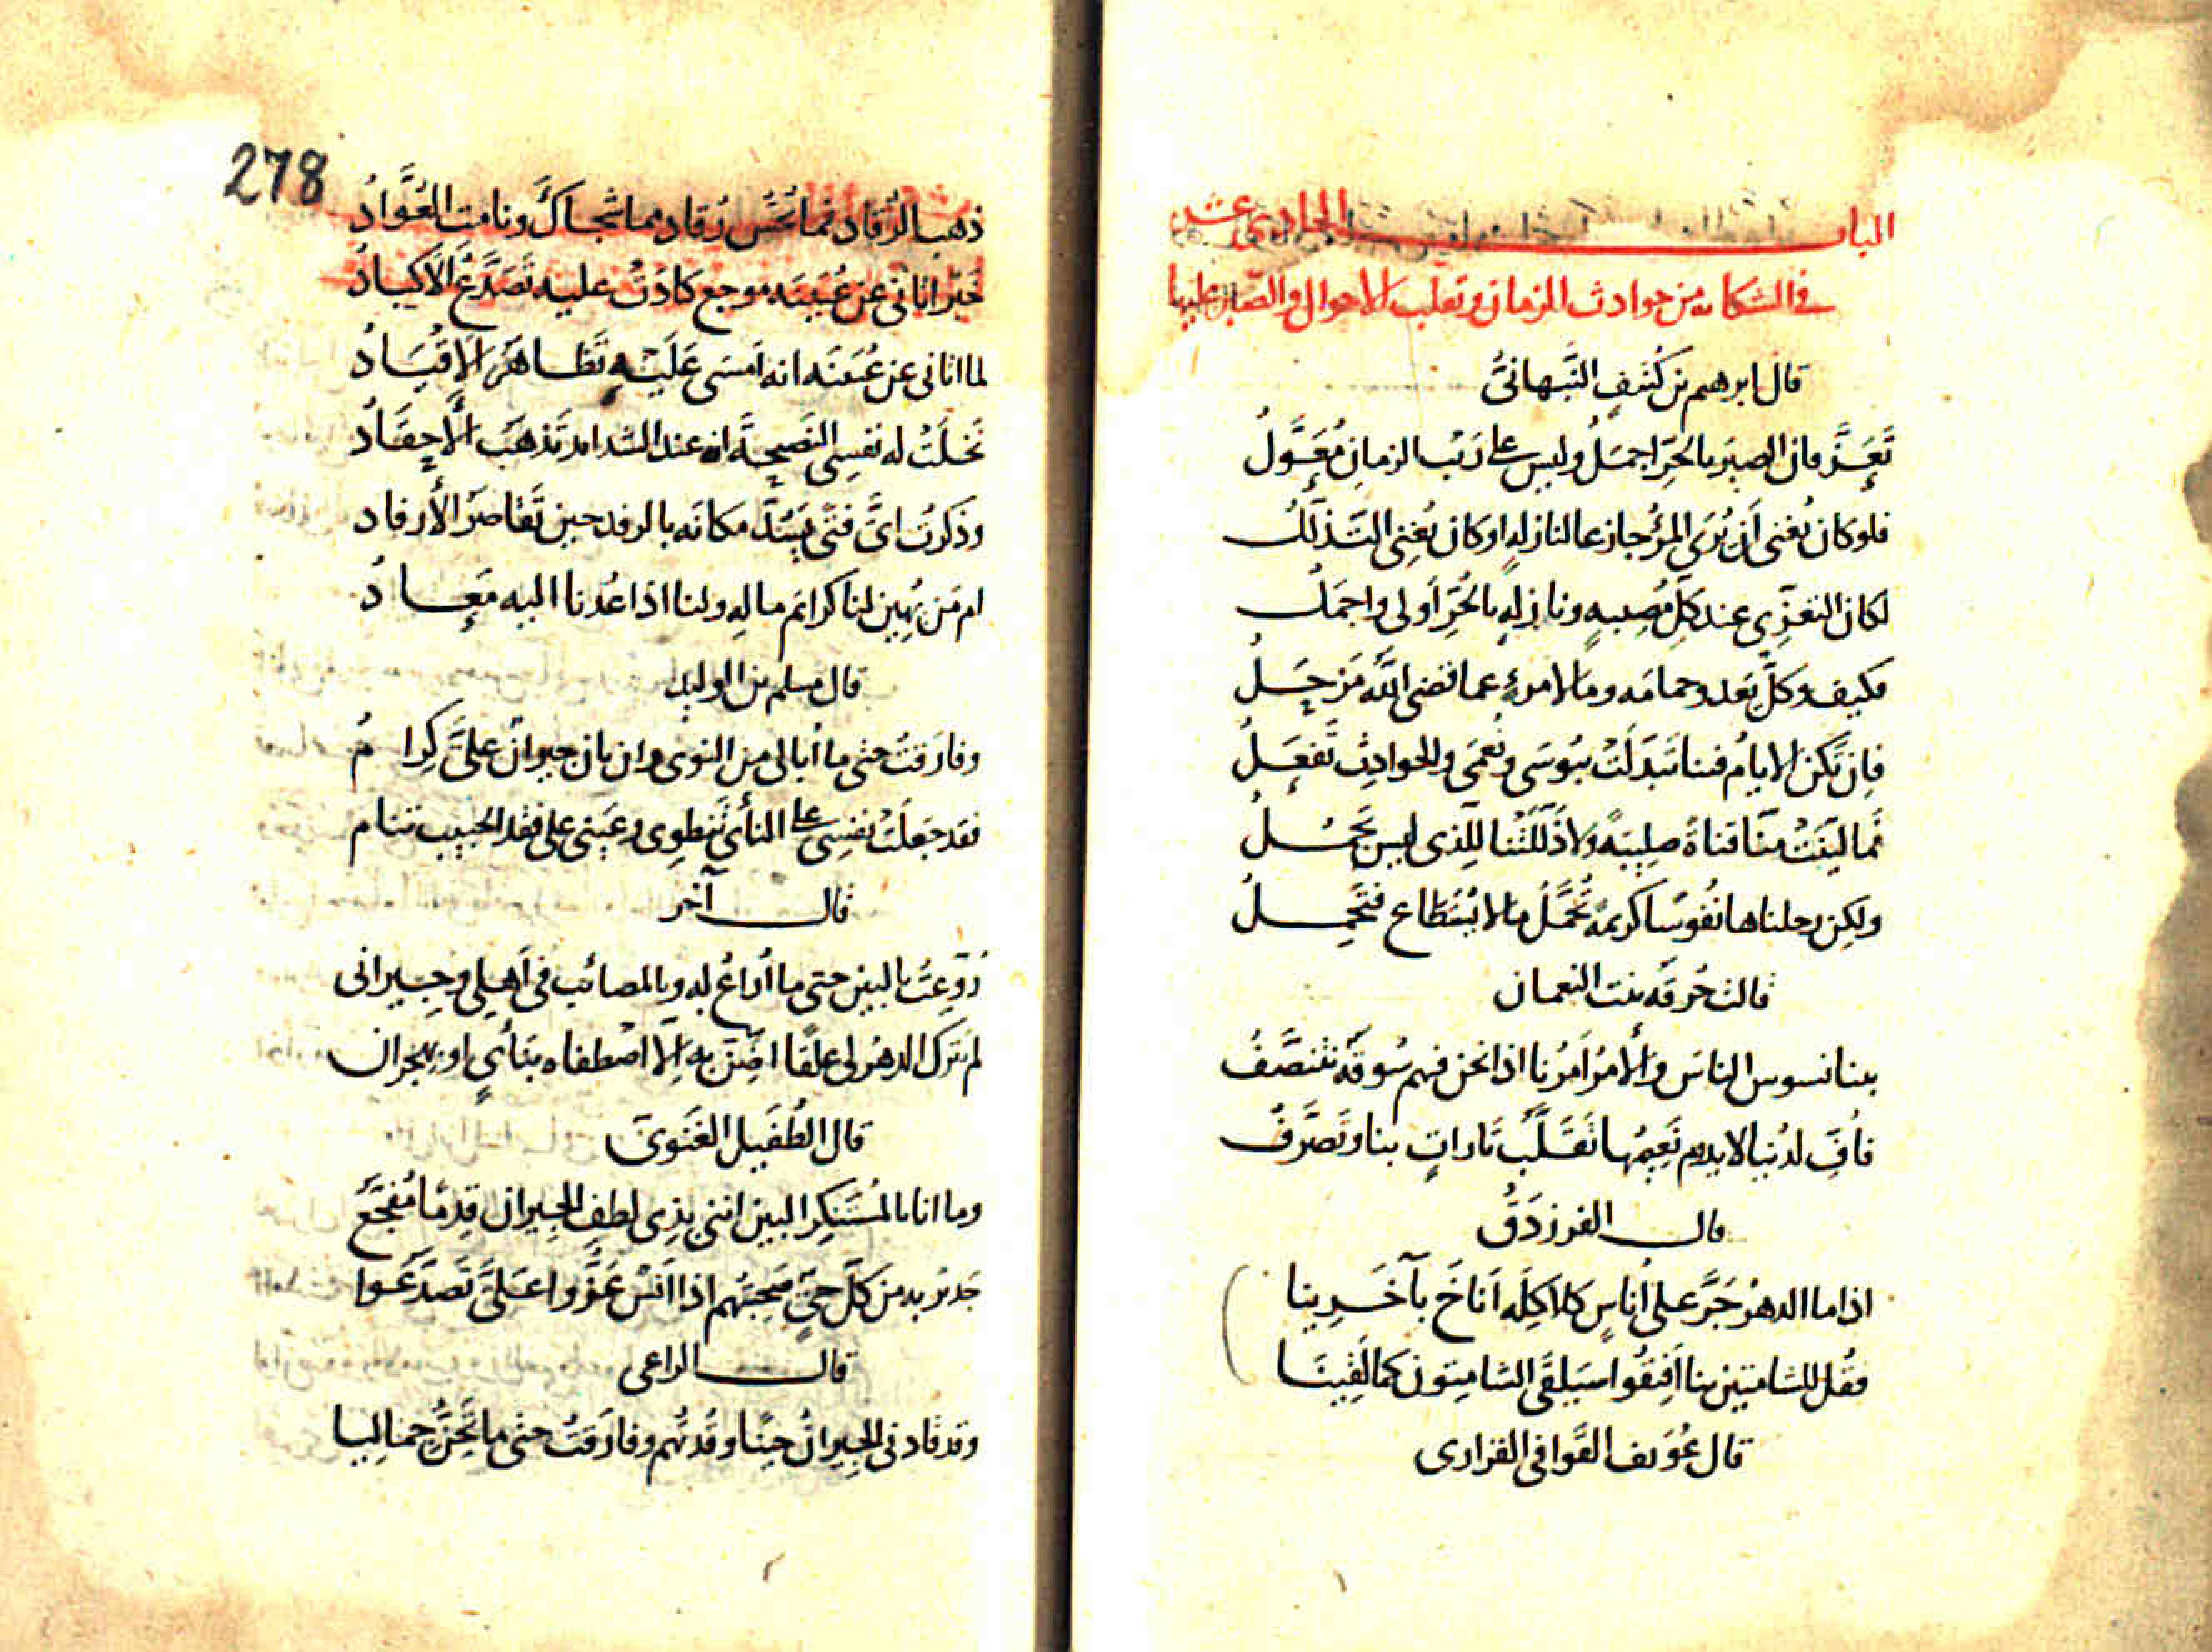 الباب الحادى عشر
فى الشكاية من حوادث الزمان وتقلب الاحوال والصبر عليها
قال ابرهيم بن كُنَيفٍ النَّبهانىُّ
تَعَزَّ فان الصبرَ بالحرّ اجمَلُ وليس على رَيْب الزمانِ مُعَوَّلُ
فلو كان يُغنى أن يُرَى المرؤُ جازعا لنازلةٍ او كان يُغنِى التَّذلُّلُ
لكان التعَزِّى عند كلّ مُصِيبةٍ ونازلةٍ بالحُرِّ أولى واجمَلُ
فكيف وكلٌّ يَعدو حمامَه وما لامرئٍ عما قضى اللّه مَزحَلُ
فاِن تَكُن الايامُ فينا تَبَدلَتْ ببُوسَى ونُعمَى والحوادِث تَفعَلُ
فما ليَّنَتْ منّا قناةً صلِيبَةً ولا ذَلَّلَتْنا للّذى ليس يَجمُلُ
ولكن رحلناها نُفوسًا كريمةً تُحَمَّلُ ما لا يُستَطاع فتَحمِلُ
قالت حُرقَه بنت النعمان
بينا نسوس الناسَ والأمرُ أمرُنا اذا نحن فيهم سُوقَةٌ نتنصَّفُ
فأُفٍّ لدُنيا لا يدوم نَعِيمُها تَقَلَّبُ تاراتٍ بنا وتَصَرَّفُ
قال الفرزدَقُ
اذا ما الدهرُ جَرَّ على أُناسٍ كلاكِلَه أناخَ بآخَرِينا
فقُل للشامتين بنا أفيقُوا سيَلقَى الشامِتون كما لَقِينَا
قال عُوَيف القَوافى الفزارى
278
ذهب الرُّقاد فما يُحَسُّ رُقاد مما شجاكَ ونامت العُوَّادُ
خبَرٌ اتانى عن عُيَينَه موجع كادَتْ عليه تَصَدَّعُ الأكبادُ
لما اتانى عن عُيَينَه انه أمسَى عَلَيْهِ تَظاهَرَ الاقيَادُ
نَخلَتْ له نفسِى النَّصيحةَ انه عند الشدائد تَذهَبُ الأحقَادُ
وذكرتُ اىُّ فتًى يَسُدُّ مكانَه بالرفد حين تَقاصَرُ الأرفاد
ام مَن يُهِين لنا كرائمَ مالِه ولنا اذا عُدنا اليه مَعادُ
قال مسلم بن الوليد
وفارَقتُ حتى ما أُبالى من النوى وان بان جيرانٌ علىَّ كِرامُ
فقد جعَلَتْ نفسِى على النأى تَنطوِى وعَينى على فقد الحبيب تنام
قال آخر
رُوِّعتُ بالبين حتى ما أُراعُ له وبالمصائب فى أهلِى وجِيرانى
لم يَترك الدهرُ لى عِلقًا اضِنّ به اِلا اصطفاه بنأىٍ او بهجران
قال الطُفَيل الغَنَوىّ
وما انا بالمُستَنكِرِ البين اننى بذِى لطفِ الجيران قِدمًا مُفجَّعُ
جدير به من كلّ حىٍّ صَحِبتُهم اذا أنَسٌ عَزُّوا عَلىَّ تَصَدَّعُوا
قال الراعى
وقد قادنى الجيرانُ حِينًا وقُدتُهم وفارَقتُ حتى ما تَحِنُّ جمالِيا